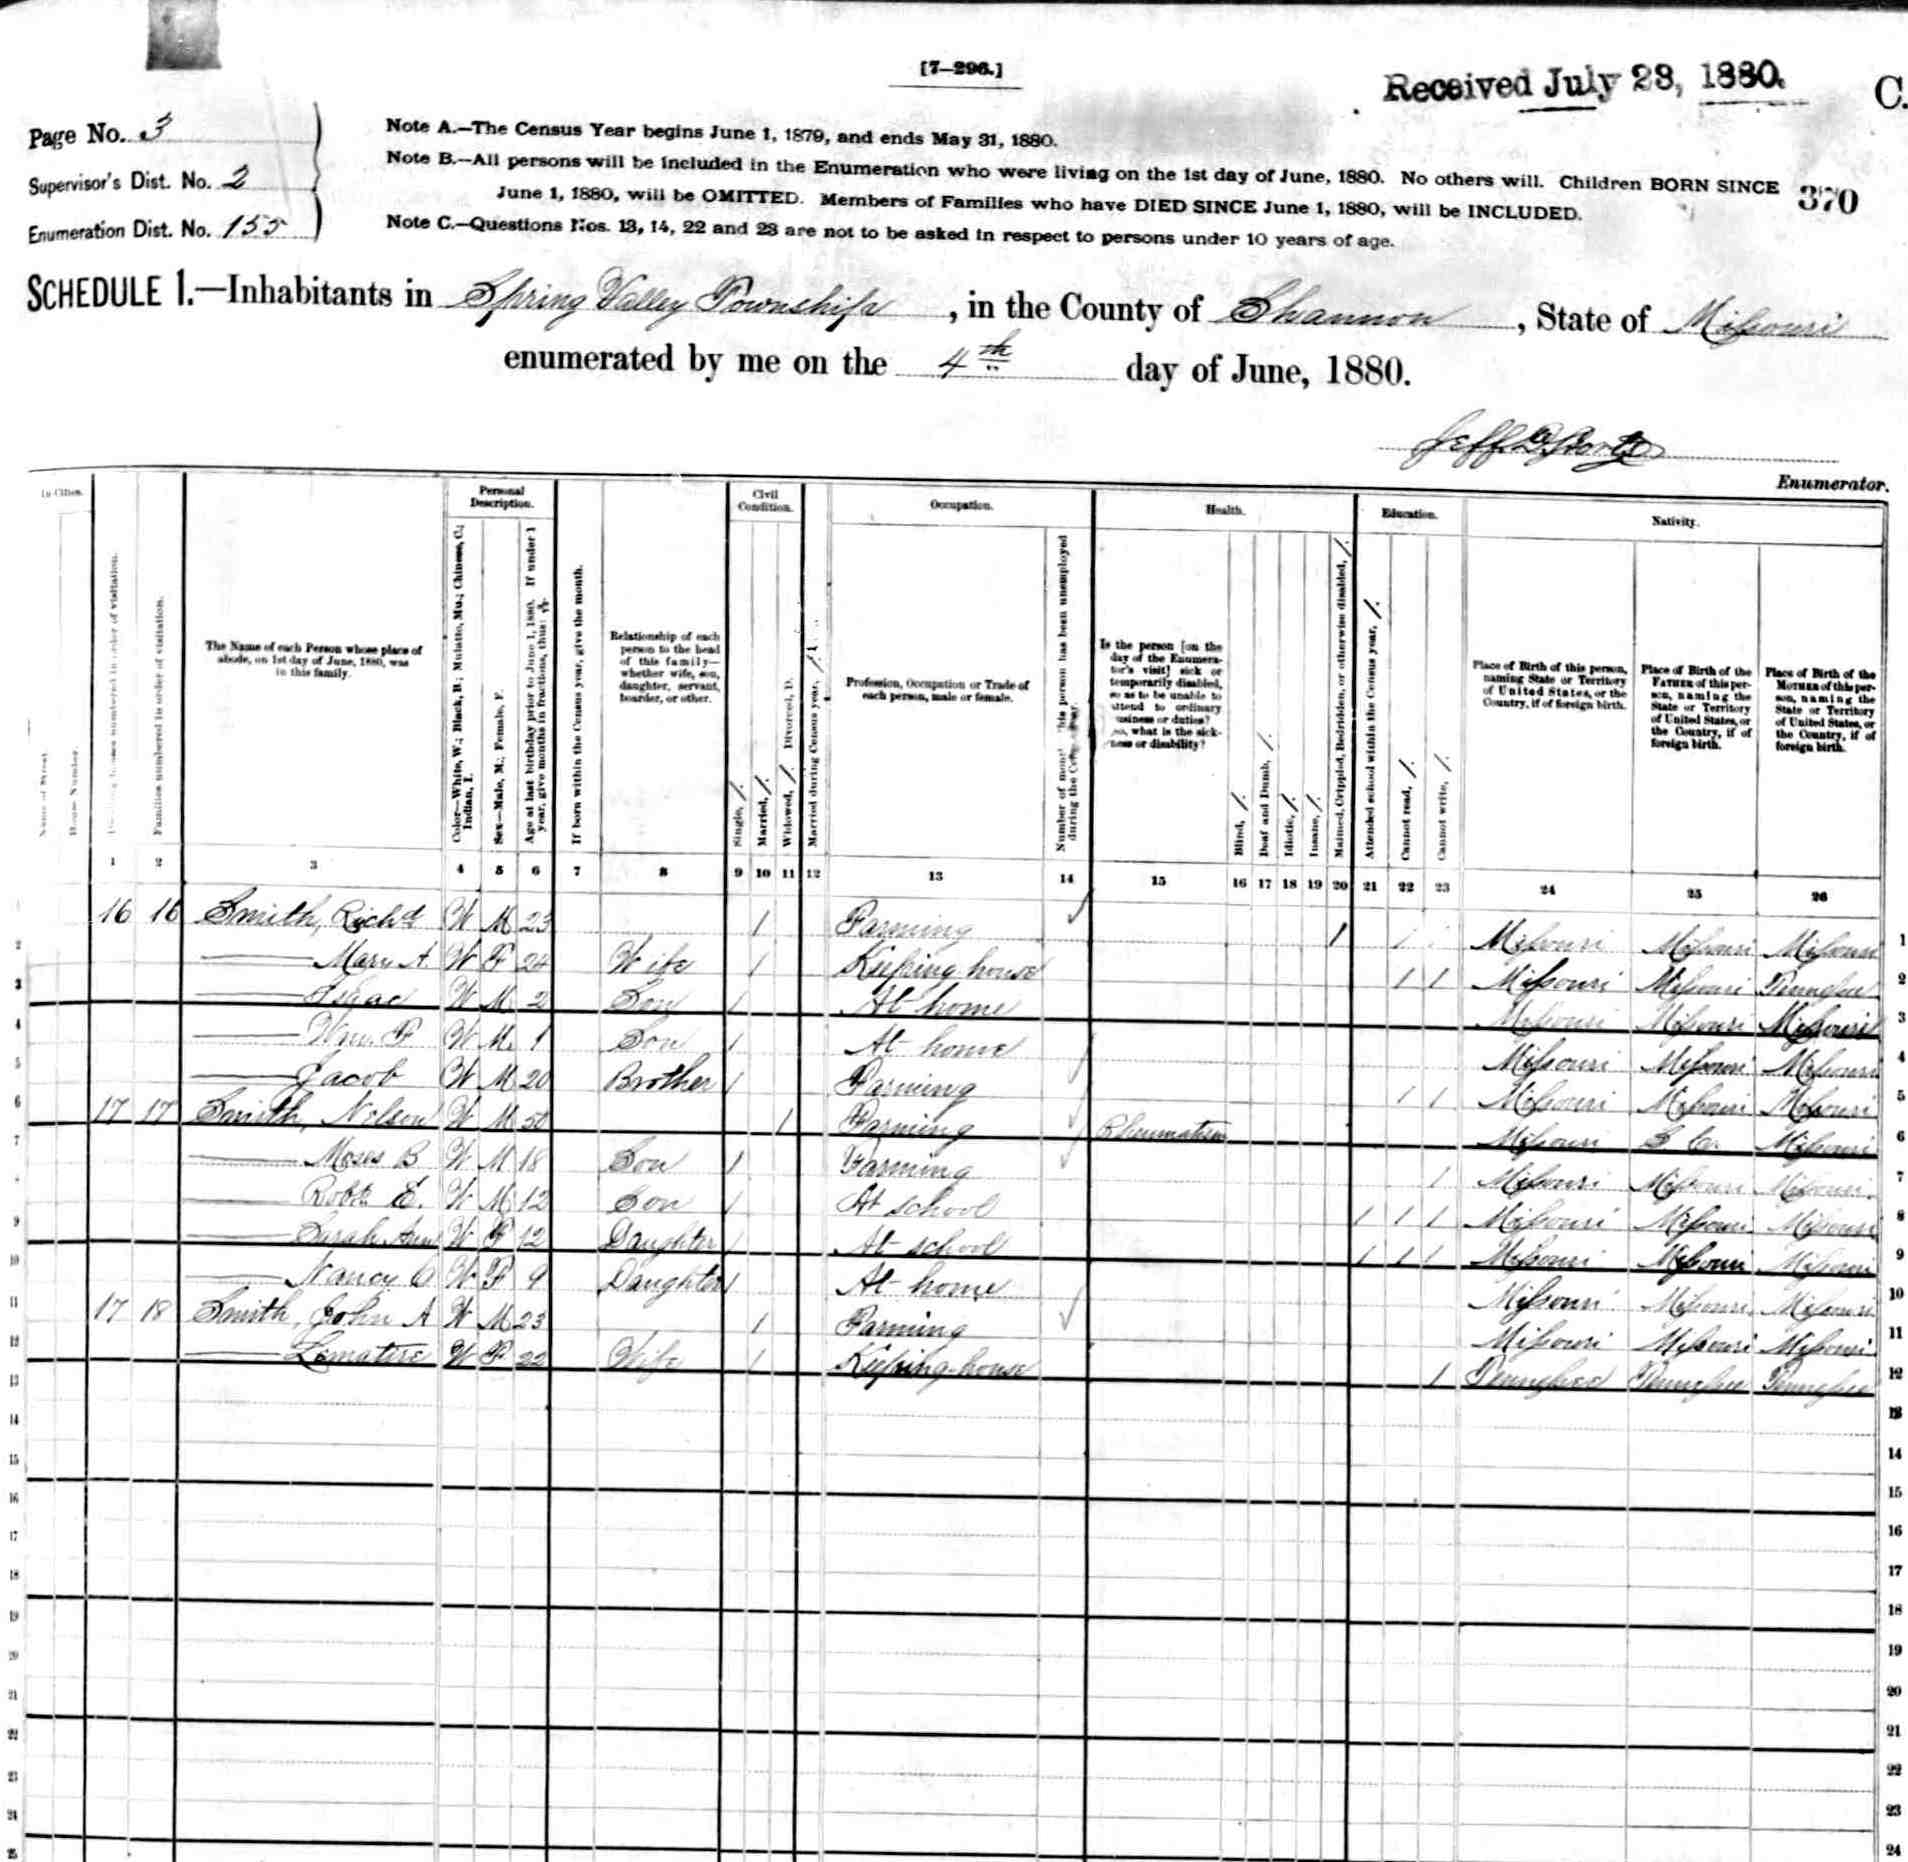 [7—296.]
Received July 23, 1880.
C.
Page No. 3
Supervisor's Dist. No. 2
Enumeration Dist. No. 155
Note A.—The Census Year begins June 1, 1879, and ends May 31, 1880.
Note B.—All persons will be included in the Enumeration who were living on the 1st day of June, 1880. No others will. Children BORN SINCE
June 1, 1880, will be OMITTED. Members of Families who have DIED SINCE June 1, 1880, will be INCLUDED.
Note C.—Questions Nos. 13, 14, 22 and 23 are not to be asked in respect to persons under 10 years of age.
370
SCHEDULE 1.—Inhabitants in Spring Valley Township, in the County of Shannon, State of Missouri
enumerated by me on the 4th day of June, 1880.
Jeff. D.
Enumerator.
In Cities.
Name of Street.
House Number.
Dwelling houses numbered in order of visitation.
Families numbered in order of visitation.
The Name of each Person whose place of abode, on 1st day of June, 1880, was in this family.
Personal Description.
Color—White, W.; Black, B.; Mulatto, Mu.; Chinese, C.; Indian, I.
Sex—Male, M.; Female, F.
Age at last birthday prior to June 1, 1880. If under 1 year, give months in fractions, thus:
If born within the Census year, give the month.
Relationship of each person to the head of this family—whether wife, son, daughter, servant, boarder, or other.
Civil Condition.
Single, /.
Married, /.
Widowed, /. Divorced, D.
Married during Census year, /.
Occupation.
Profession, Occupation or Trade of each person, male or female.
Number of months this person has been unemployed during the Census year.
Health.
Is the person [on the day of the Enumerator's visit] sick or temporarily disabled, so as to be unable to attend to ordinary business or duties? If so, what is the sickness or disability?
Blind, /.
Deaf and Dumb, /.
Idiotic, /.
Insane, /.
Maimed, Crippled, Bedridden, or otherwise disabled, /.
Education.
Attended school within the Census year, /.
Cannot read, /.
Cannot write, /.
Nativity.
Place of Birth of this person, naming State or Territory of United States, or the Country, if of foreign birth.
Place of Birth of the FATHER of this person, naming the State or Territory of United States, or the Country, if of foreign birth.
Place of Birth of the MOTHER of this person, naming the State or Territory of United States, or the Country, if of foreign birth.
1 2 3 4 5 6 7 8 9 10 11 12 13 14 15 16 17 18 19 20 21 22 23 24 25 26
1 16 16 Smith, Richd W M 23 / Farming / / / Missouri Missouri Missouri 1
2 —— Mary A. W F 24 Wife / Keeping house / / Missouri Missouri Tennessee 2
3 —— Ishac W M 2 Son / At home Missouri Missouri Missouri 3
4 —— Wm. F W M. 1 Son / At home Missouri Missouri Missouri 4
5 —— Jacob W M 20 Brother / Farming / / Missouri Missouri Missouri 5
6 17 17 Smith, Nelson W M 50 / Farming Rheumatism Missouri Missouri 6
7 —— Moses B W M 18 Son / Farming / Missouri Missouri Missouri 7
8 —— Robt. E. W M 12 Son / At school / / / Missouri Missouri Missouri 8
9 —— Sarah Ann W F 12 Daughter / At school / / / Missouri Missouri Missouri 9
10 —— Nancy C W F 9 Daughter / At home Missouri Missouri Missouri 10
11 17 18 Smith, John A W M 23 / Farming Missouri Missouri Missouri 11
12 —— W F 22 Wife / Keeping house / Tennessee Tennessee Tennessee 12
13 13
14 14
15 15
16 16
17 17
18 18
19 19
20 20
21 21
22 22
23 23
24 24
25